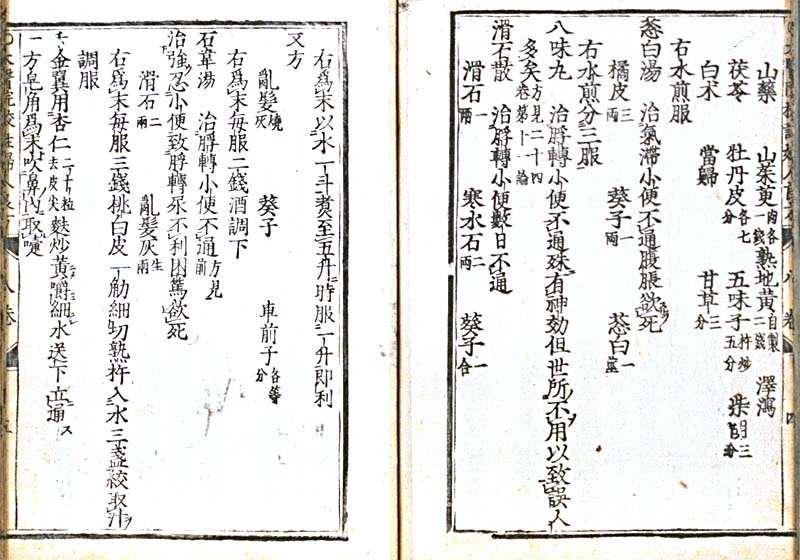 山藥 山茱萸肉各一錢 熟地黃自製二錢 澤瀉
茯苓 牡丹皮各七分 五味子杵炒五分 柴胡三分
白朮 當歸 甘草三分
右水煎服
葱白湯 治氣滯小便不通腹脹欲死
橘皮三兩 葵子一兩 葱白一莖
右水煎分三服
八味丸 治脬轉小便不通殊有神効但世所不用以致誤人
多矣方見二十四卷第十一論
滑石散 治脬轉小便數日不通
滑石一兩 寒水石二兩 葵子一合
右爲末以水一斗煮至五升時服一升即利
又方
亂髮燒灰 葵子 車前子各等分
右爲末每服二錢酒調下
石韋湯 治脬轉小便不通方見前
治強忍小便致脬轉尿不利困篤欲死
滑石二兩 亂髮灰生兩
右爲末每服三錢桃白皮一觔細切熟杵入水三盞絞取汁
調服
一金翼用杏仁二十粒去皮尖麩炒黃嚼細水送下立通
一方皂角爲末吹鼻內取嚏
八卷